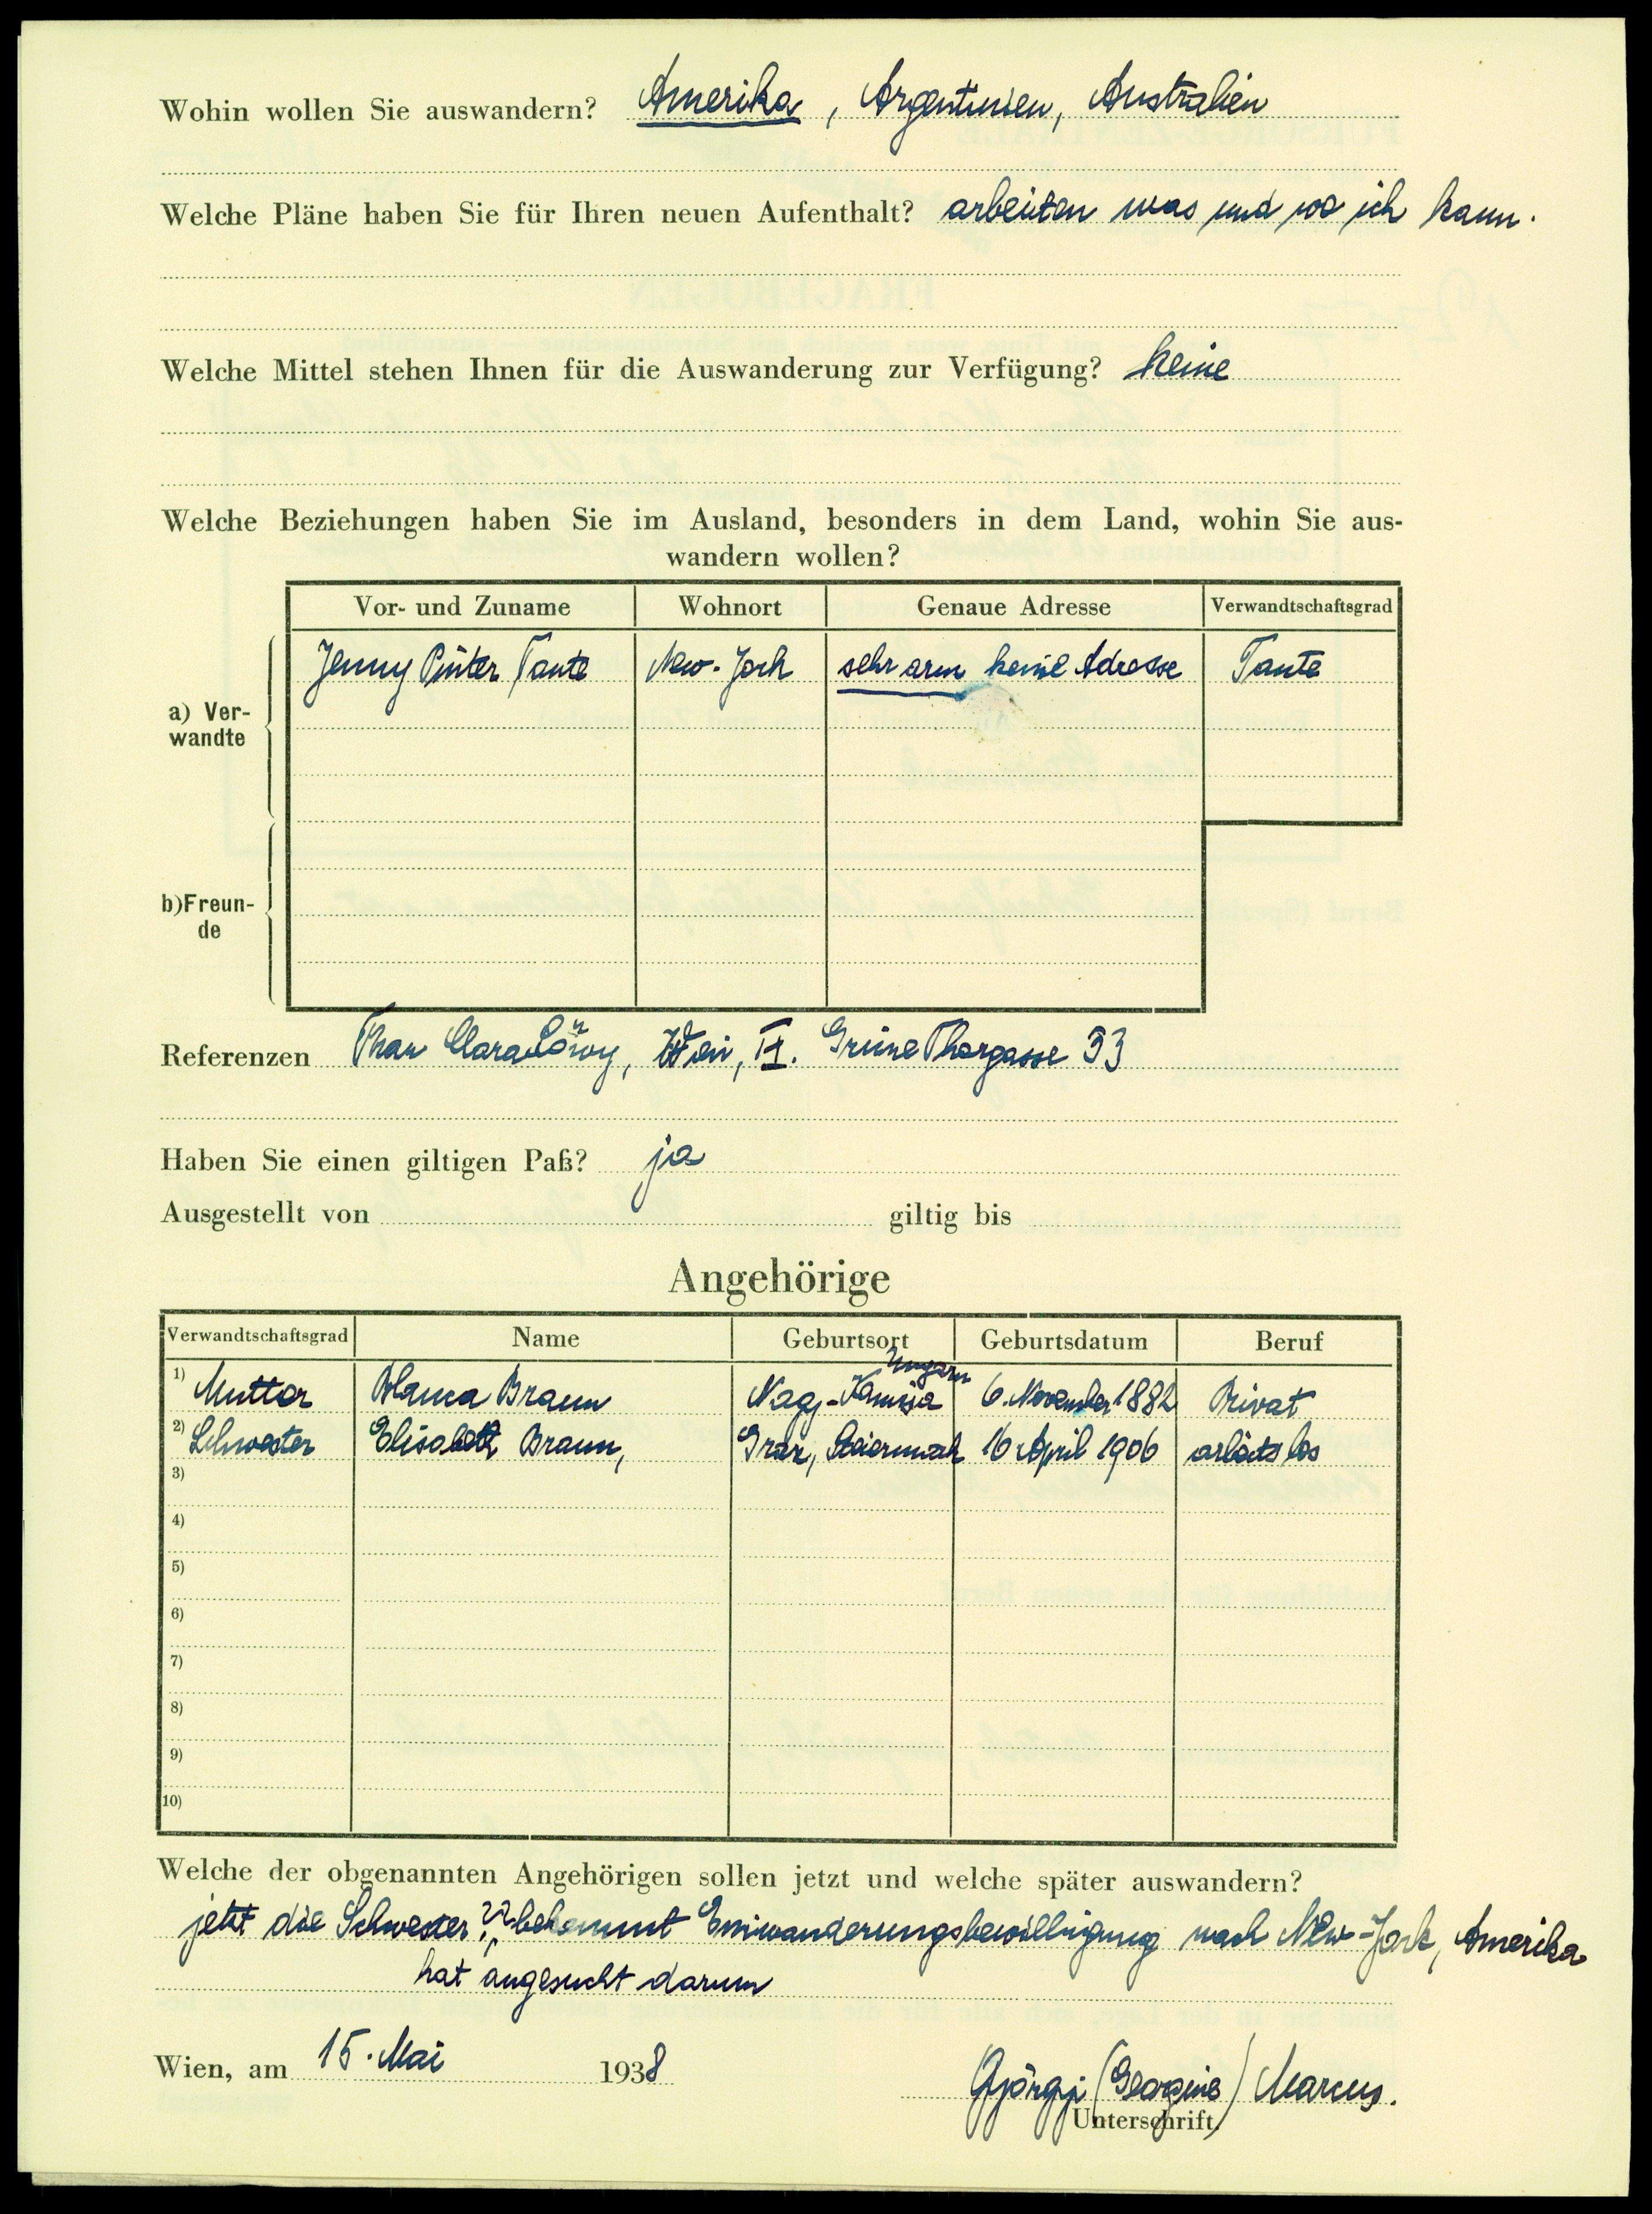 Wohin wollen Sie auswandern? Amerika, Argentinien, Australien
Welche Pläne haben Sie für Ihren neuen Aufenthalt? arbeiten was und wo ich kann.
Welche Mittel stehen Ihnen für die Auswanderung zur Verfügung? keine
Welche Beziehungen haben Sie im Ausland, besonders in dem Land, wohin Sie aus-
wandern wollen?
Vor- und Zuname Wohnort Genaue Adresse Verwandtschaftsgrad
Jenny Pinter Tante New-Jork sehr arm keine Adresse Tante
a) Ver-
wandte
b) Freun-
de
Referenzen Frau Clara Löwy, Wien, II. Grüne Thorgasse 33
Haben Sie einen giltigen Paß? ja
Ausgestellt von giltig bis
Angehörige
Verwandtschaftsgrad Name Geburtsort Geburtsdatum Beruf
Ungarn
1) Mutter Blanca Braun Nagy-Kanisja 6. November 1882 Privat
2) Schwester Elisabeth Braun, Graz, Steiermark 16 April 1906 arbeitslos
3)
4)
5)
6)
7)
8)
9)
10)
Welche der obgenannten Angehörigen sollen jetzt und welche später auswandern?
jetzt die Schwester, bekommt Einwanderungsbewilligung nach New-Jork, Amerika
hat angesucht darum
Wien, am 15. Mai 1938
Györgyi (Georgine) Marcus.
Unterschrift